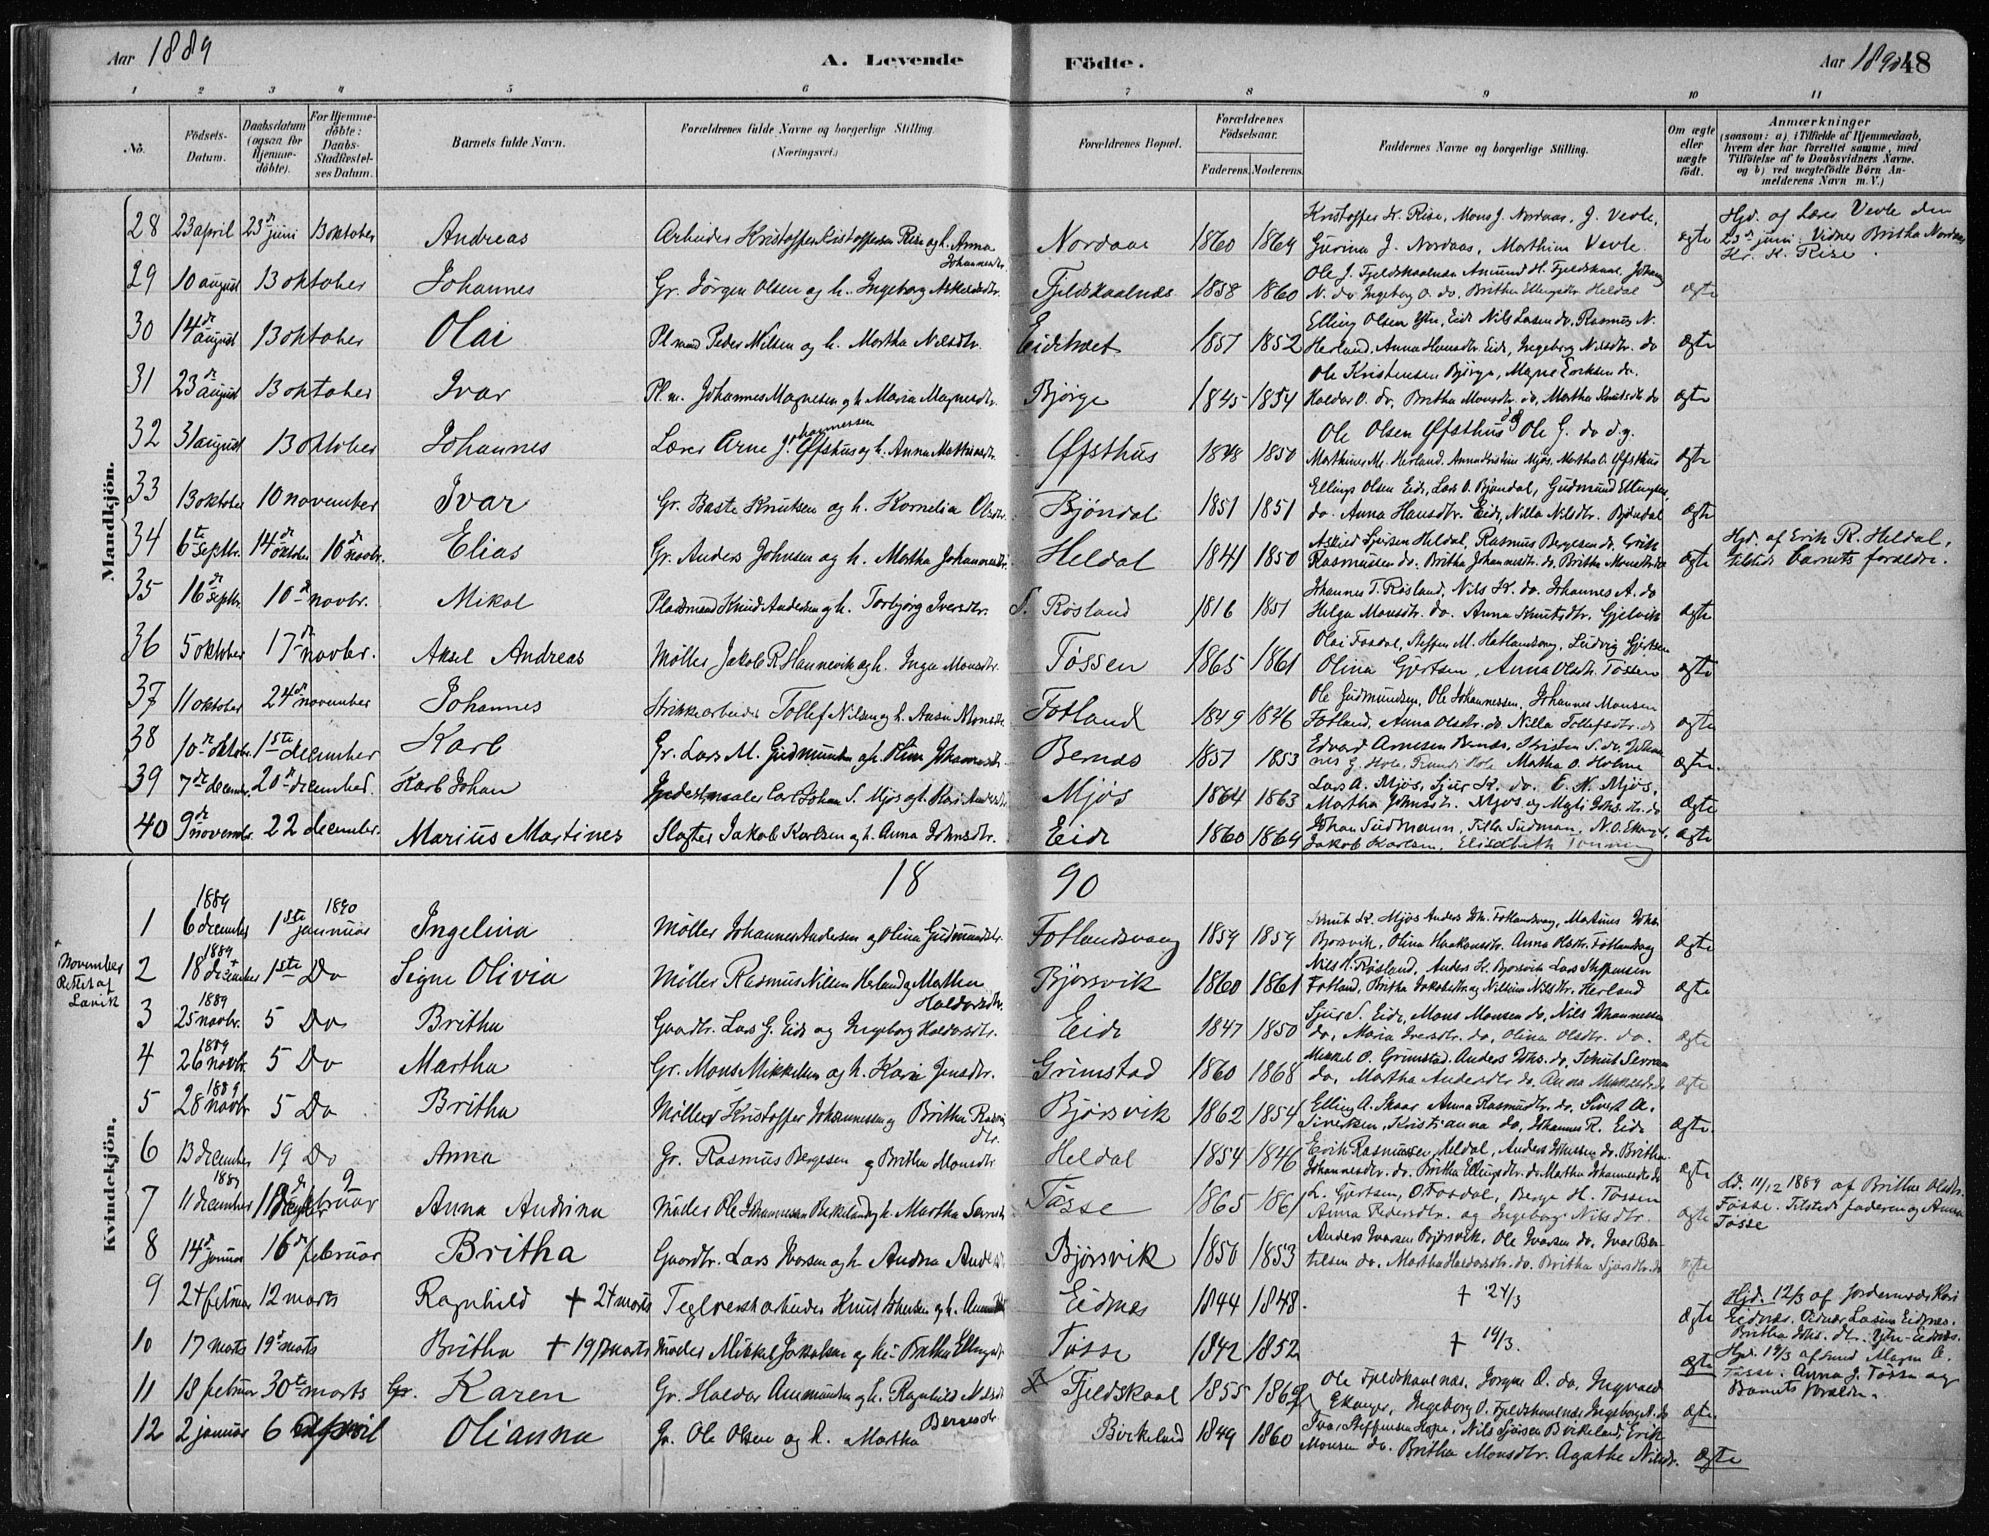 Aar 1889
A. Levende
Födte.
Aar 1890
48
1 2 3 4 5 6 7 8 9 10 11
No.
Födsets-Datum.
Daabsdatum (ogsaa for Hjemmedöbte).
For Hjemmedöbte: Daabs-Stadfæstelses Datum.
Barnets fulde Navn.
Forældrenes fulde Navne og borgerlige Stilling. (Næringsvei.)
Forældrenes Bopæl.
Forældrenes Födselsaar.
Faderens. Moderens.
Faddernes Navne og borgerlige Stilling.
Om ægte eller uægte födt.
Anmærkninger (saasom: a) i Tilfælde af Hjemmedaab, hvem der har forrettet samme, med Tilföielse af to Daabsvidners Navne, og b) ved uægtefödte Börn Anmelderens Navn m. V.)
Mandkjön.
28 23 april 23de juni 13 oktober Andreas Arbeider Kristoffer Kristoffersen Rise og h. Anna Johannesdtr. Nordaas 1860 1864 Kristoffer Kr. Rise, Mons J. Nordaas, J. Vevle,
Gurina J. Nordaas, Marthina Vevle. ægte Hjd. af Lærer Vevle den
23de juni. Vidner Britha Nordaas
Kr. K. Rise.
29 10 august 13 oktober Johannes Gr. Jörgen Olsen og h. Ingeborg Askeladtr. Fjeldskaalnæs 1858 1860 Ole J. Fjeldskaalnæs Amund H. Fjeldskaal, Johans
N. do Ingeborg O. do. Britha Ellingsdtr. Heldal ægte
30 14de august 13 oktober Olai Plmand Peder Nilsen og h. Martha Nilsdtr. Eidetræet 1857 1852 Elling Olsen Ytr. Eide Nils Larsen do, Rasmus N.
Herland, Anna Hansdtr. Eide, Ingeborg Nilsdtr. do ægte
31 23de august 13 oktober Ivar Pl.m. Johannes Magnesen og h. Maria Magnesdtr. Bjørge 1845 1854 Ole Kristensen Bjørge, Magne Eriksen do.
Haldor O. do, Britha Monsdtr. do, Martha Knutsdtr do ægte
32 31 august 13 oktober Johannes Lærer Arne Johannessen Øfsthus og h. Anna Mathiasdtr. Øffsthus 1848 1850 Ole Olsen Øfsthus Ole G. do d.y.
Marthines M. Herland. Anna Kristine Mjøs, Martha O. Øfsthus ægte
33 13 oktober 10 november Ivar Gr. Baste Knutsen og h. Kornelia Olsdtr. Bjöndal 1851 1851 Ellings Olsen Eide, Lars O. Bjöndal, Gudmund Ellingsen,
do. Anna Hansdtr. Eide, Nilla Nilsdtr. Bjöndal ægte
34 6te septbr. 14de oktober 10de novbr. Elias Gr. Anders Johnsen og h. Martha Johannesdtr. Heldal 1841 1850 Askild Sjursen Heldal, Rasmus Bergesen do. Erik
Rasmussen do. Britha Johannesdtr. do. Britha Monsdtr. do ægte Hjd. af Erik R. Heldal,
tilstede barnets forældre.
35 16de septbr. 10de novbr. Mikal Pladsmand Knud Andersen og h. Torbjörg Iversdtr. S. Røsland 1816 1851 Johannes T. Røsland, Nils K. do. Johannes A. do
Helga Monsdtr. do. Anna Knutsdtr. Gjelvik ægte
36 5 oktober 17de novbr. Aksel Andreas Møller Jakob R. Hannevik og h. Inga Monsdtr. Tøssen 1865 1861 Olai Fosdal, Steffen M. Hatlandsvag, Ludvig Gjertsen
Olina Gjertsen, Anna Olsdtr. Tøssen ægte
37 11 oktober 24de november Johannes Strikkearbeider Tollef Nilsen og h. Ansa Monsdtr Fotland 1849 1846 Ole Gudmundsen, Ole Johannessen, Johannes Monsen
Fotland. Anna Olsdtr. do Nilla Tollefsdtr. do ægte
38 10de oktobr. 1ste december Karl Gr. Lars M. Gudmundsen og h. Olina Johannesdtr Bernæs 1851 1853 Edvard Arnesen Bernæs, Kristen S. do. Johannes G. Hole, Hole Martha O. Holme ægte.
39 7de december 20de december Karl Johan maler Carl Johan S. Mjøs og h. Kari Andersdtr Mjøs 1864 1863 Lars A. Mjøs, Sjur K. do. E. N. Mjøs,
Martha Johnsdtr. Mjøs og Johs. dtr. do ægte
40 9de november 22 december. Marius Martines Slagter Jakob Karlsen og h. Anna Johnsdtr. Eide 1860 1864 Johan Sudmann, Tilla Sudman, N. O. Ekanger,
Jakob Karlsen, Elisabeth Tonning ægte
18 90
Kvindekjön.
+ November
Rettet af
Lavik
1 1889 6 december 1ste januar 1890 Ingelina Møller Johannes Andersen og Olina Gudmundsdtr. Fotlandsvaag 1859 1859 Knut K. Mjøs Anders Joh. Fotlandsvag, Martines Johs.
Bjorsvik, Olina Haakonsdtr. Anna Olsdtr. Fotlandsvag ægte
2 1889 18 december + 1ste Do Signe Olivia Møller Rasmus Nilsen Herland og Martha Haldorsdtr. Bjørsvik 1860 1861 Nils H. Røsland, Anders H. Bjorsvik Lars Steffensen
Fotland, Britha Jakobsdtr. og Nilsina Nilsdtr. Herland ægte
3 1889 25 novbr. 5 Do Britha Gaardbr. Lars G. Eide og Ingeborg Haldorsdtr. Eide 1847 1850 Sjur S. Eide, Mons Monsen do, Nils Johannessen
do, Maria Iversdtr. do, Olina Olsdtr. do. ægte
4 1889 26 novbr. 5 Do Martha Gr. Mons Mikkelsen og h. Kari Jensdtr. Grimstad 1860 1868 Mikkel O. Grimstad. Anders Johs. do, Knut
do, Martha Andersdtr do, Anna Mikkelsdtr do ægte
5 1889 28 novbr. 5 Do Britha Møller Kristoffer Johannessen og Britha Rasmusdtr. Bjørsvik 1862 1854 Elling A. Skaar Anna Rasmusdtr. do, Sivert A.
Sivertsen, Kristianna do, Johannes R. Eide ægte.
6 13 december 19 Do Anna Gr. Rasmus Bergesen og Britha Monsdtr Heldal 1854 1846 Erik Rasmussen Heldal, Anders Johnsen do. Britha
Johannesdtr. do. Britha Ellingsdtr. do. Martha Johannesdtr do ægte
7 1889 11 december 9 februar Anna Andrina Møller Ole Johannesen Birkeland og h. Martha Tøsse 1865 1861 L. Gjertsen, O Fosdal, Berge H. Tøssen
Anna Pedersdtr. og Ingeborg Nilsdtr. ægte Hd. 11/12 1889 af Britha Olsdtr.
Tøsse. Tilstede faderen og Anna
Tøsse
8 14de januar 16de februar Britha Gaardbr. Lars Ivarsen og h Andrea Bjørsvik 1850 1853 Anders Ivarsen Bjørsvik, Ole Ivarsen do, Ivar Bertilsen do. Martha Haldorsdtr. do. Britha Sjursdtr. do ægte
9 24 februar 12 marts Ragnhild + 24 marts Teglverksarbeider Knut Johnsen og h. Anna Eidnes 1844 1848. + 24/3 ægte Hjd. 12/3 af Jordemoder Kari
Eidnæs. Vidner Lasse Eidnes.
Britha Johs. dtr. Ytre-Eidnæs.
10 17 marts 19de marts Britha + 19 marts Møller Mikkel Jakobsen og h. Britha Ellingsdtr Tøsse 1842 1852 + 19/3. ægte Hjd. 19/3 af Magne A.
Tøsse. Anna J. Tøssen og
Barnets forældre.
11 18 februar 30te marts Karen Gr. Haldor Ammundsen og h. Ragnhild Nilsdtr Fjeldskaal 1855 1869 Ole Fjeldskaalnæs, Jørgen O. do, Ingvald
Ekanger, Ingeborg O. Fjeldskaalnæs Ingeborg N. do ægte
12 2 januar 6 april Olianna Gr. Ole Olsen og h. Martha Bergesdtr. Birkeland 1849 1860 Ivar Steffensen Hope, Nils Sjursen Birkeland, Erik
Monsen do. Britha Monsdtr. Agathe Nilsdtr. ægte